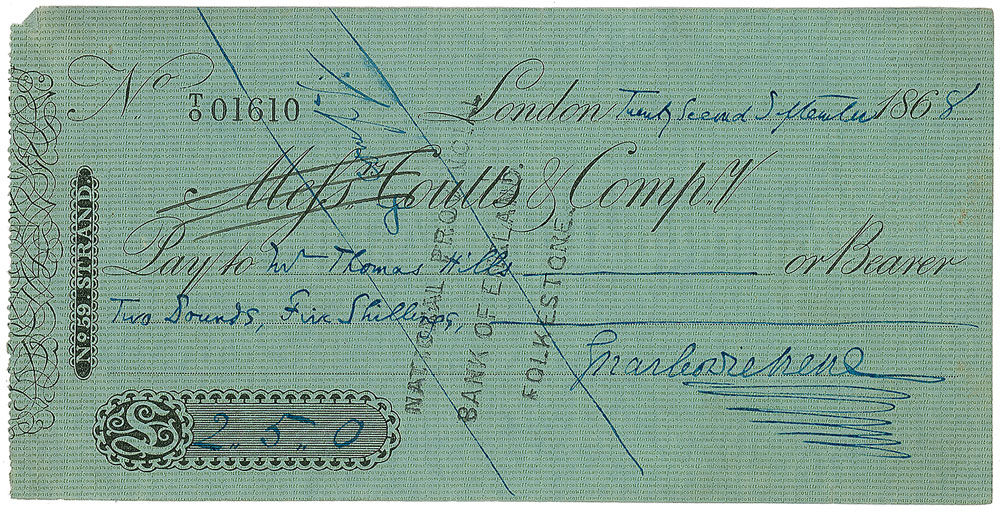 No. T/O 01610 London Twenty Second September 1868
Mess. Coutts & Compy.
Pay to Mr Thomas Hills or Bearer
Two Pounds, Five Shillings,
Charles Dickens
£ 2.. 5.. 0
No. 59. STRAND.
NATIONAL PROVINCIAL
BANK OF ENGLAND.
FOLKESTONE.